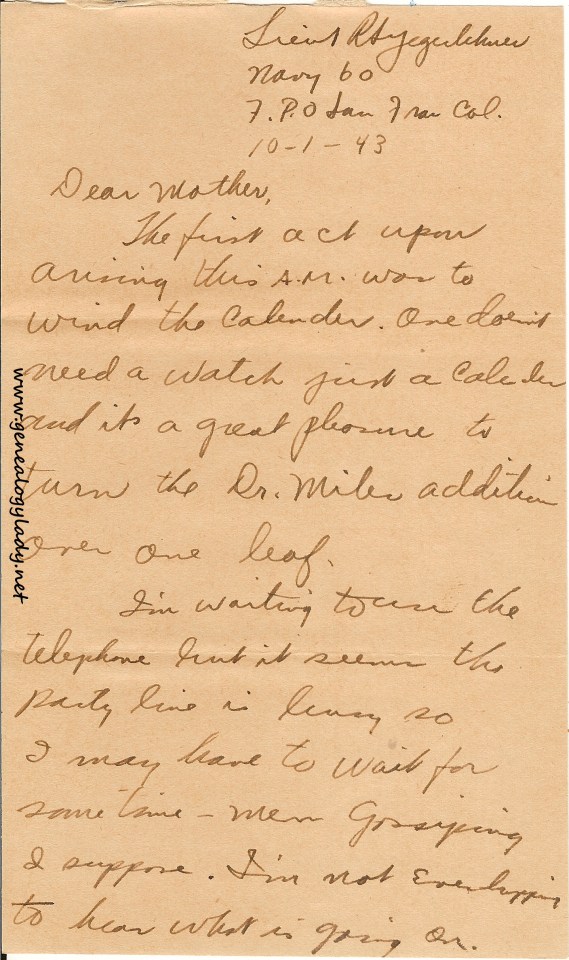 Lieut R H Yegerlehner
Navy 60
F.P.O San Fran Cal.
10-1-43
Dear Mother,
The first act upon
arising this A.M. was to
wind the Calender. One doesnt
need a watch just a Calender
and its a great pleasure to
turn the Dr. Miles addition
over one leaf.
I'm waiting to use the
telephone but it seems the
party line is busy so
I may have to wait for
some time – men Gossiping
I suppose. I'm not
to hear what is going on.
www.genealogylady.net